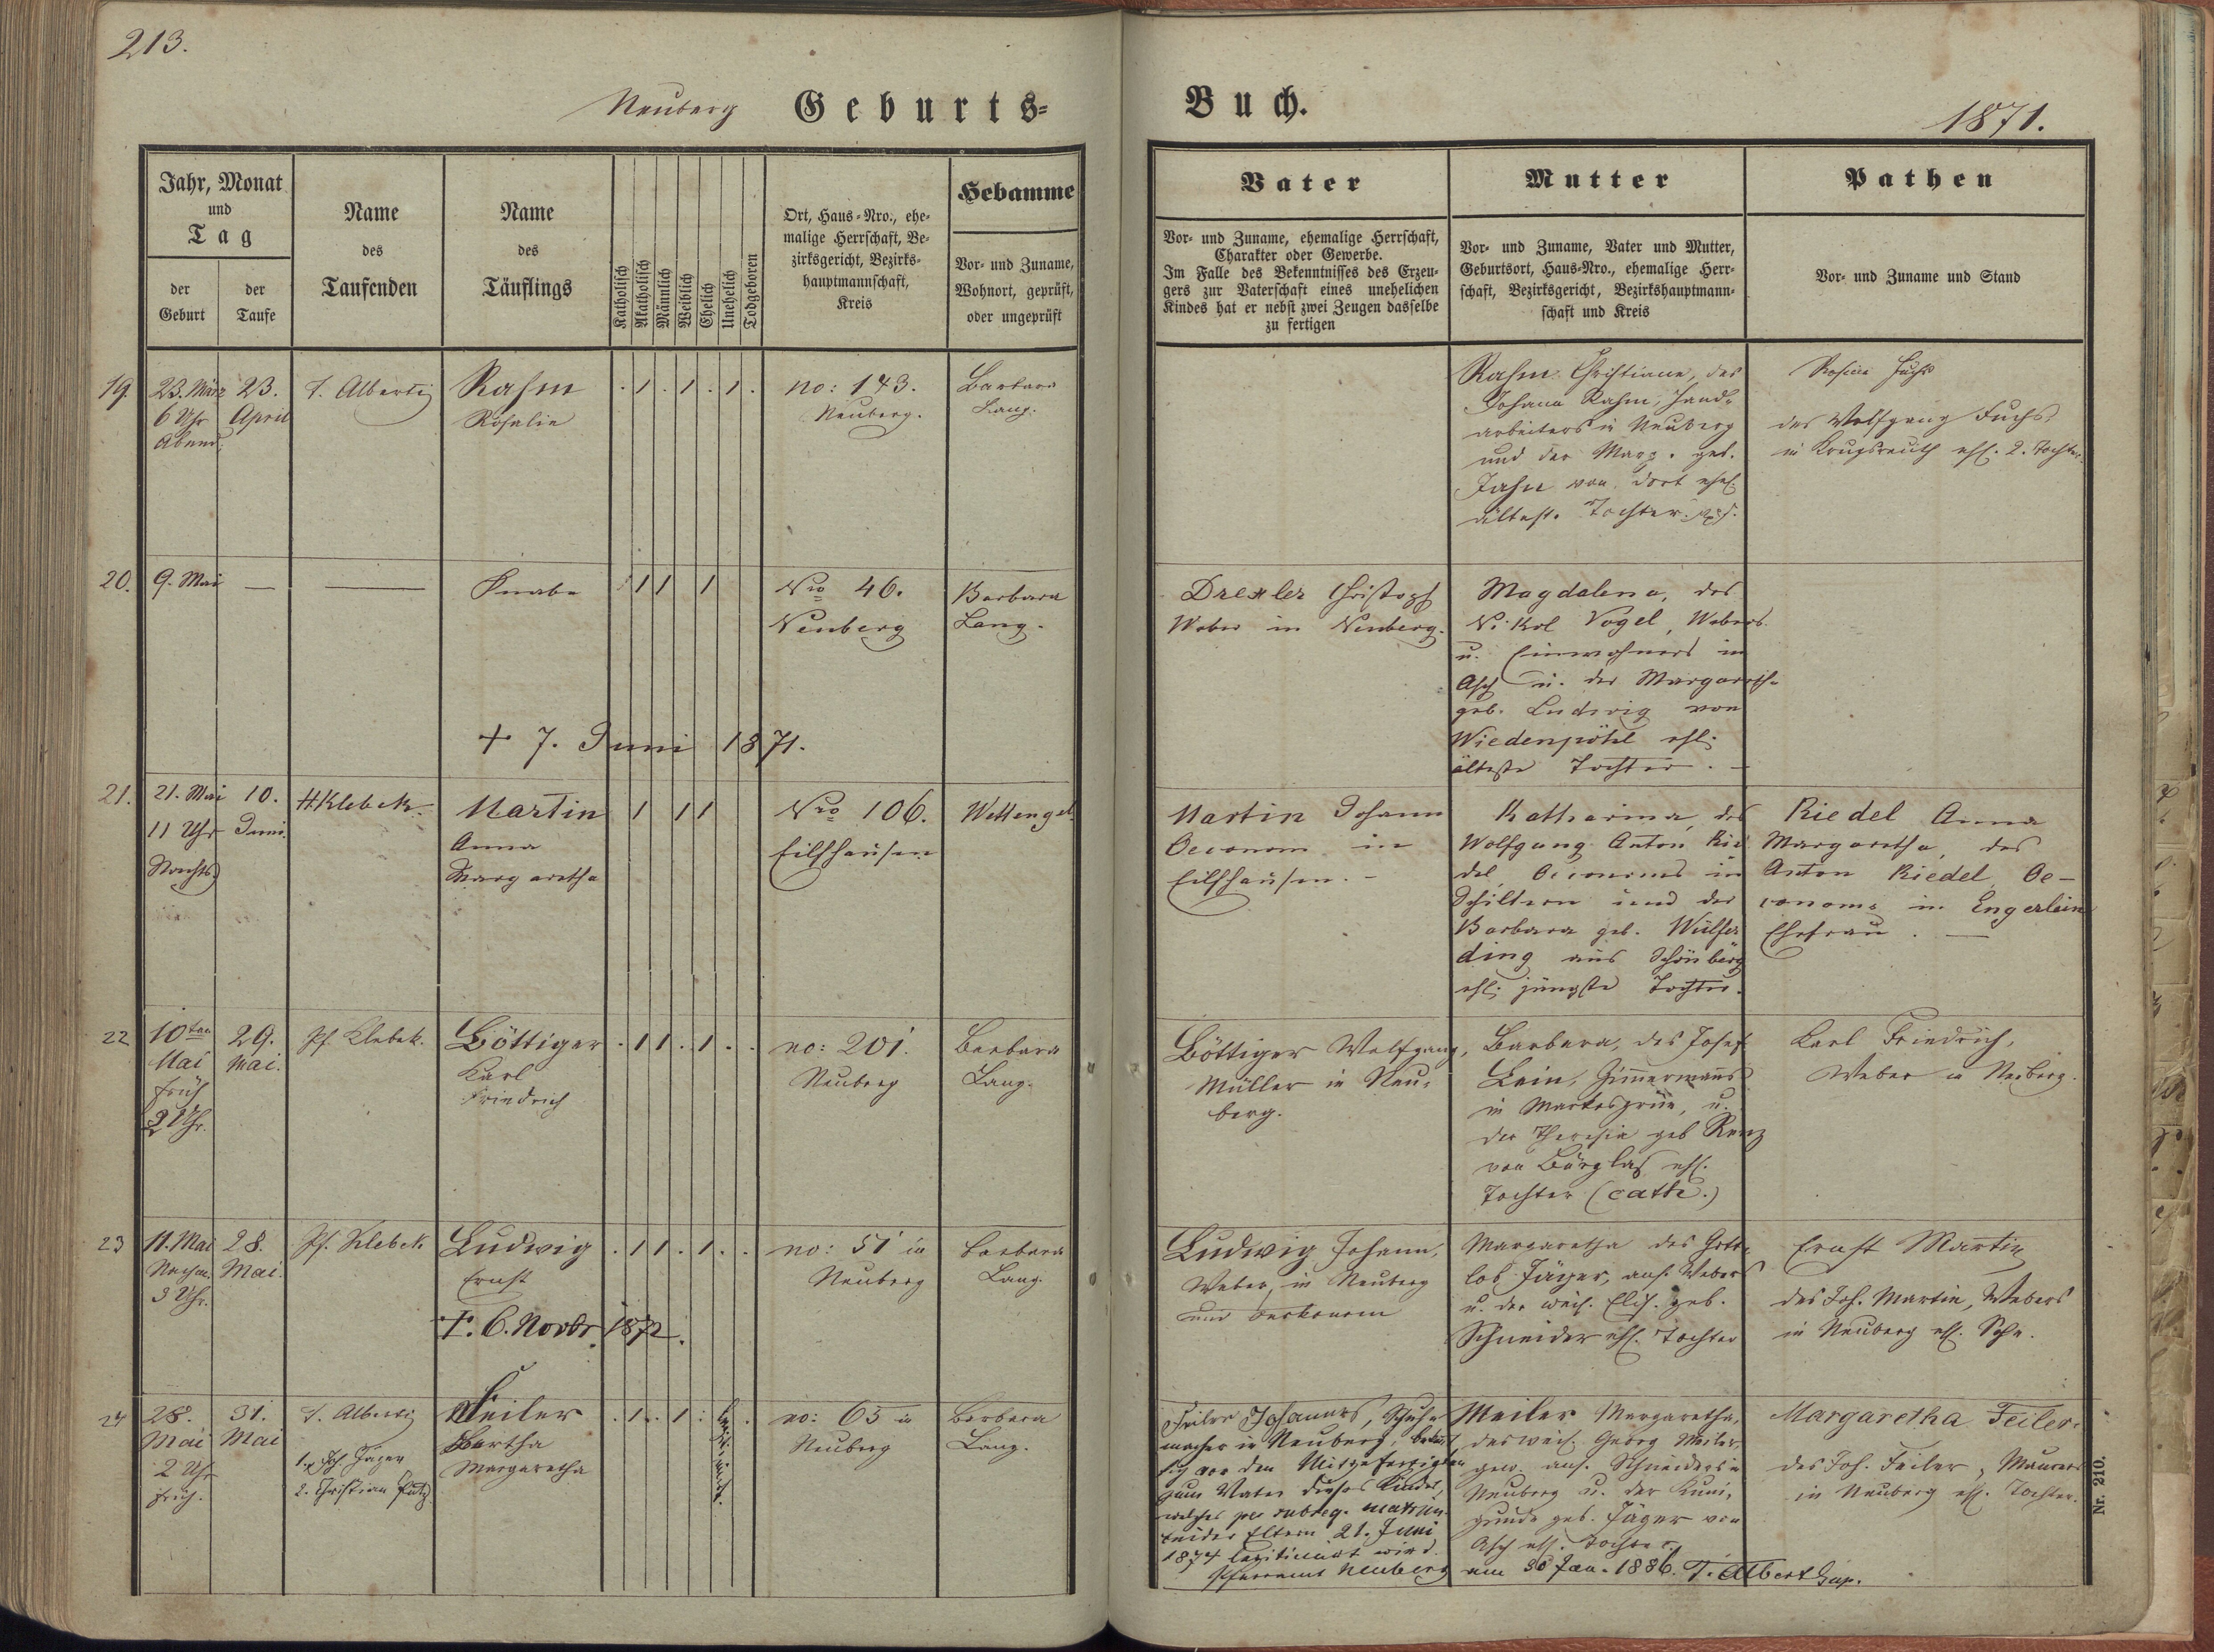 213.
Neuberg Geburts- Buch. 1871.
Jahr, Monat
und
Tag
der
Geburt
der
Taufe
Name
des
Taufenden
Name
des
Täuflings
Katholisch
Akatholisch
Männlich
Weiblich
Ehelich
Unehelich
Todgeboren
Ort, Haus-Nro., ehe-
malige Herrschaft, Be-
zirksgericht, Bezirks-
hauptmannschaft,
Kreis
Hebamme
Vor- und Zuname,
Wohnort, geprüft,
oder ungeprüft
Vater
Vor- und Zuname, ehemalige Herrschaft,
Charakter oder Gewerbe.
Im Falle des Bekenntnisses des Erzeu-
gers zur Vaterschaft eines unehelichen
Kindes hat er nebst zwei Zeugen dasselbe
zu fertigen
Mutter
Vor- und Zuname, Vater und Mutter,
Geburtsort, Haus-Nro., ehemalige Herr-
schaft, Bezirksgericht, Bezirkshauptmann-
schaft und Kreis
Pathen
Vor- und Zuname und Stand
19.
23. März
6 Uhr
Abend.
23.
April
T. Alberti
Rahm
Rosalie
. 1 . 1 . 1 .
no: 143.
Neuberg.
Barbara
Lang.
Rahm Christiane, des
Johann Rahm, Hand-
arbeiters in Neuberg
und der Marg. geb.
Jahn von dort ehel.
ältest. Tochter
Rosine Fuchs
des Wolfgang Fuchs,
in Krugsreuth ehl. 2. Tochter.
20.
9. Mai
—
—
Knabe
1 1 1
+ 7. Juni 1871.
Nro 46.
Neuberg
Barbara
Lang.
Drexler Christoph
Weber in Neuberg.
Magdalena, des
Nikol Vogel, Webers
u. Einwohners in
Asch u. der Margareth.
geb. Ludwig von
Wiedenpöhl ehl.
älteste Tochter. —
21.
21. Mai
11 Uhr
Nachts
10.
Juni.
H. Klebek.
Martin
Anna
Margaretha
1 1 1
Nro 106.
Eilfhausen
Wettengel
Martin Johann
Oeconom in
Eilfhausen. —
Katharina, des
Wolfgang Anton Rie
del, Oeconoms in
Schiltern und der
Barbara geb. Wülfer
ding aus Schönberg
ehl. jüngste Tochter.
Riedel Anna
Margaretha, des
Anton Riedel, Oe-
conoms in Engerlein
Ehefrau. —
22
10ten
Mai
früh
2 Uhr.
29.
Mai.
Pf. Klebek.
Böttiger
Karl
Friedrich
. 1 1 . 1 . .
no: 201.
Neuberg
Barbara
Lang.
Böttiger Wolfgang,
Müller in Neu-
berg.
Barbara, des Josef
Lein, Zimmermanns
in Markesgrün, u.
der Theresia geb Renz
von Bärglas ehl.
Tochter (cath.)
Karl Friedrich,
Weber in Neuberg.
23
11. Mai
Nachm.
3 Uhr.
28.
Mai.
Pf. Klebek
Ludwig
Ernst
. 1 1 . 1 . .
†. 6. Novbr 1872.
no: 51 in
Neuberg
Barbara
Lang.
Ludwig Johann,
Weber, in Neuberg
und Oeckonom
Margaretha des Gott-
lob Jäger, ans. Webers
u. der weil. Elis. geb.
Schneider ehl. Tochter
Ernst Martin
des Joh. Martin, Webers
in Neuberg ehl. Sohn.
24
28.
Mai
2 Uhr
früh.
31.
Mai
T. Alberti
1. Joh. Jäger
2. Christian Putz.
Feiler
Bertha
Margaretha
. 1 . 1 . legitimirt.
no: 65 in
Neuberg
Barbara
Lang.
Feiler Johannes, Schuh-
macher in Neuberg, bekennt
sich vor den Mitgefertigten
zum Vater dieses Kindes,
welches per subseq. matrim.
beider Eltern 21. Juni
1874 legitimirt wird.
Pfarramt Neuberg am 30 Jan. 1886. T. Alberti Sup.
Meiler Margaretha,
des weil. Georg Meiler,
gew. ans. Schneiders in
Neuberg u. der Kuni-
gunde geb. Jäger von
Asch ehl. Tochter.
Margaretha Feiler,
des Joh. Feiler, Maurers
in Neuberg ehl. Tochter.
Nr. 210.